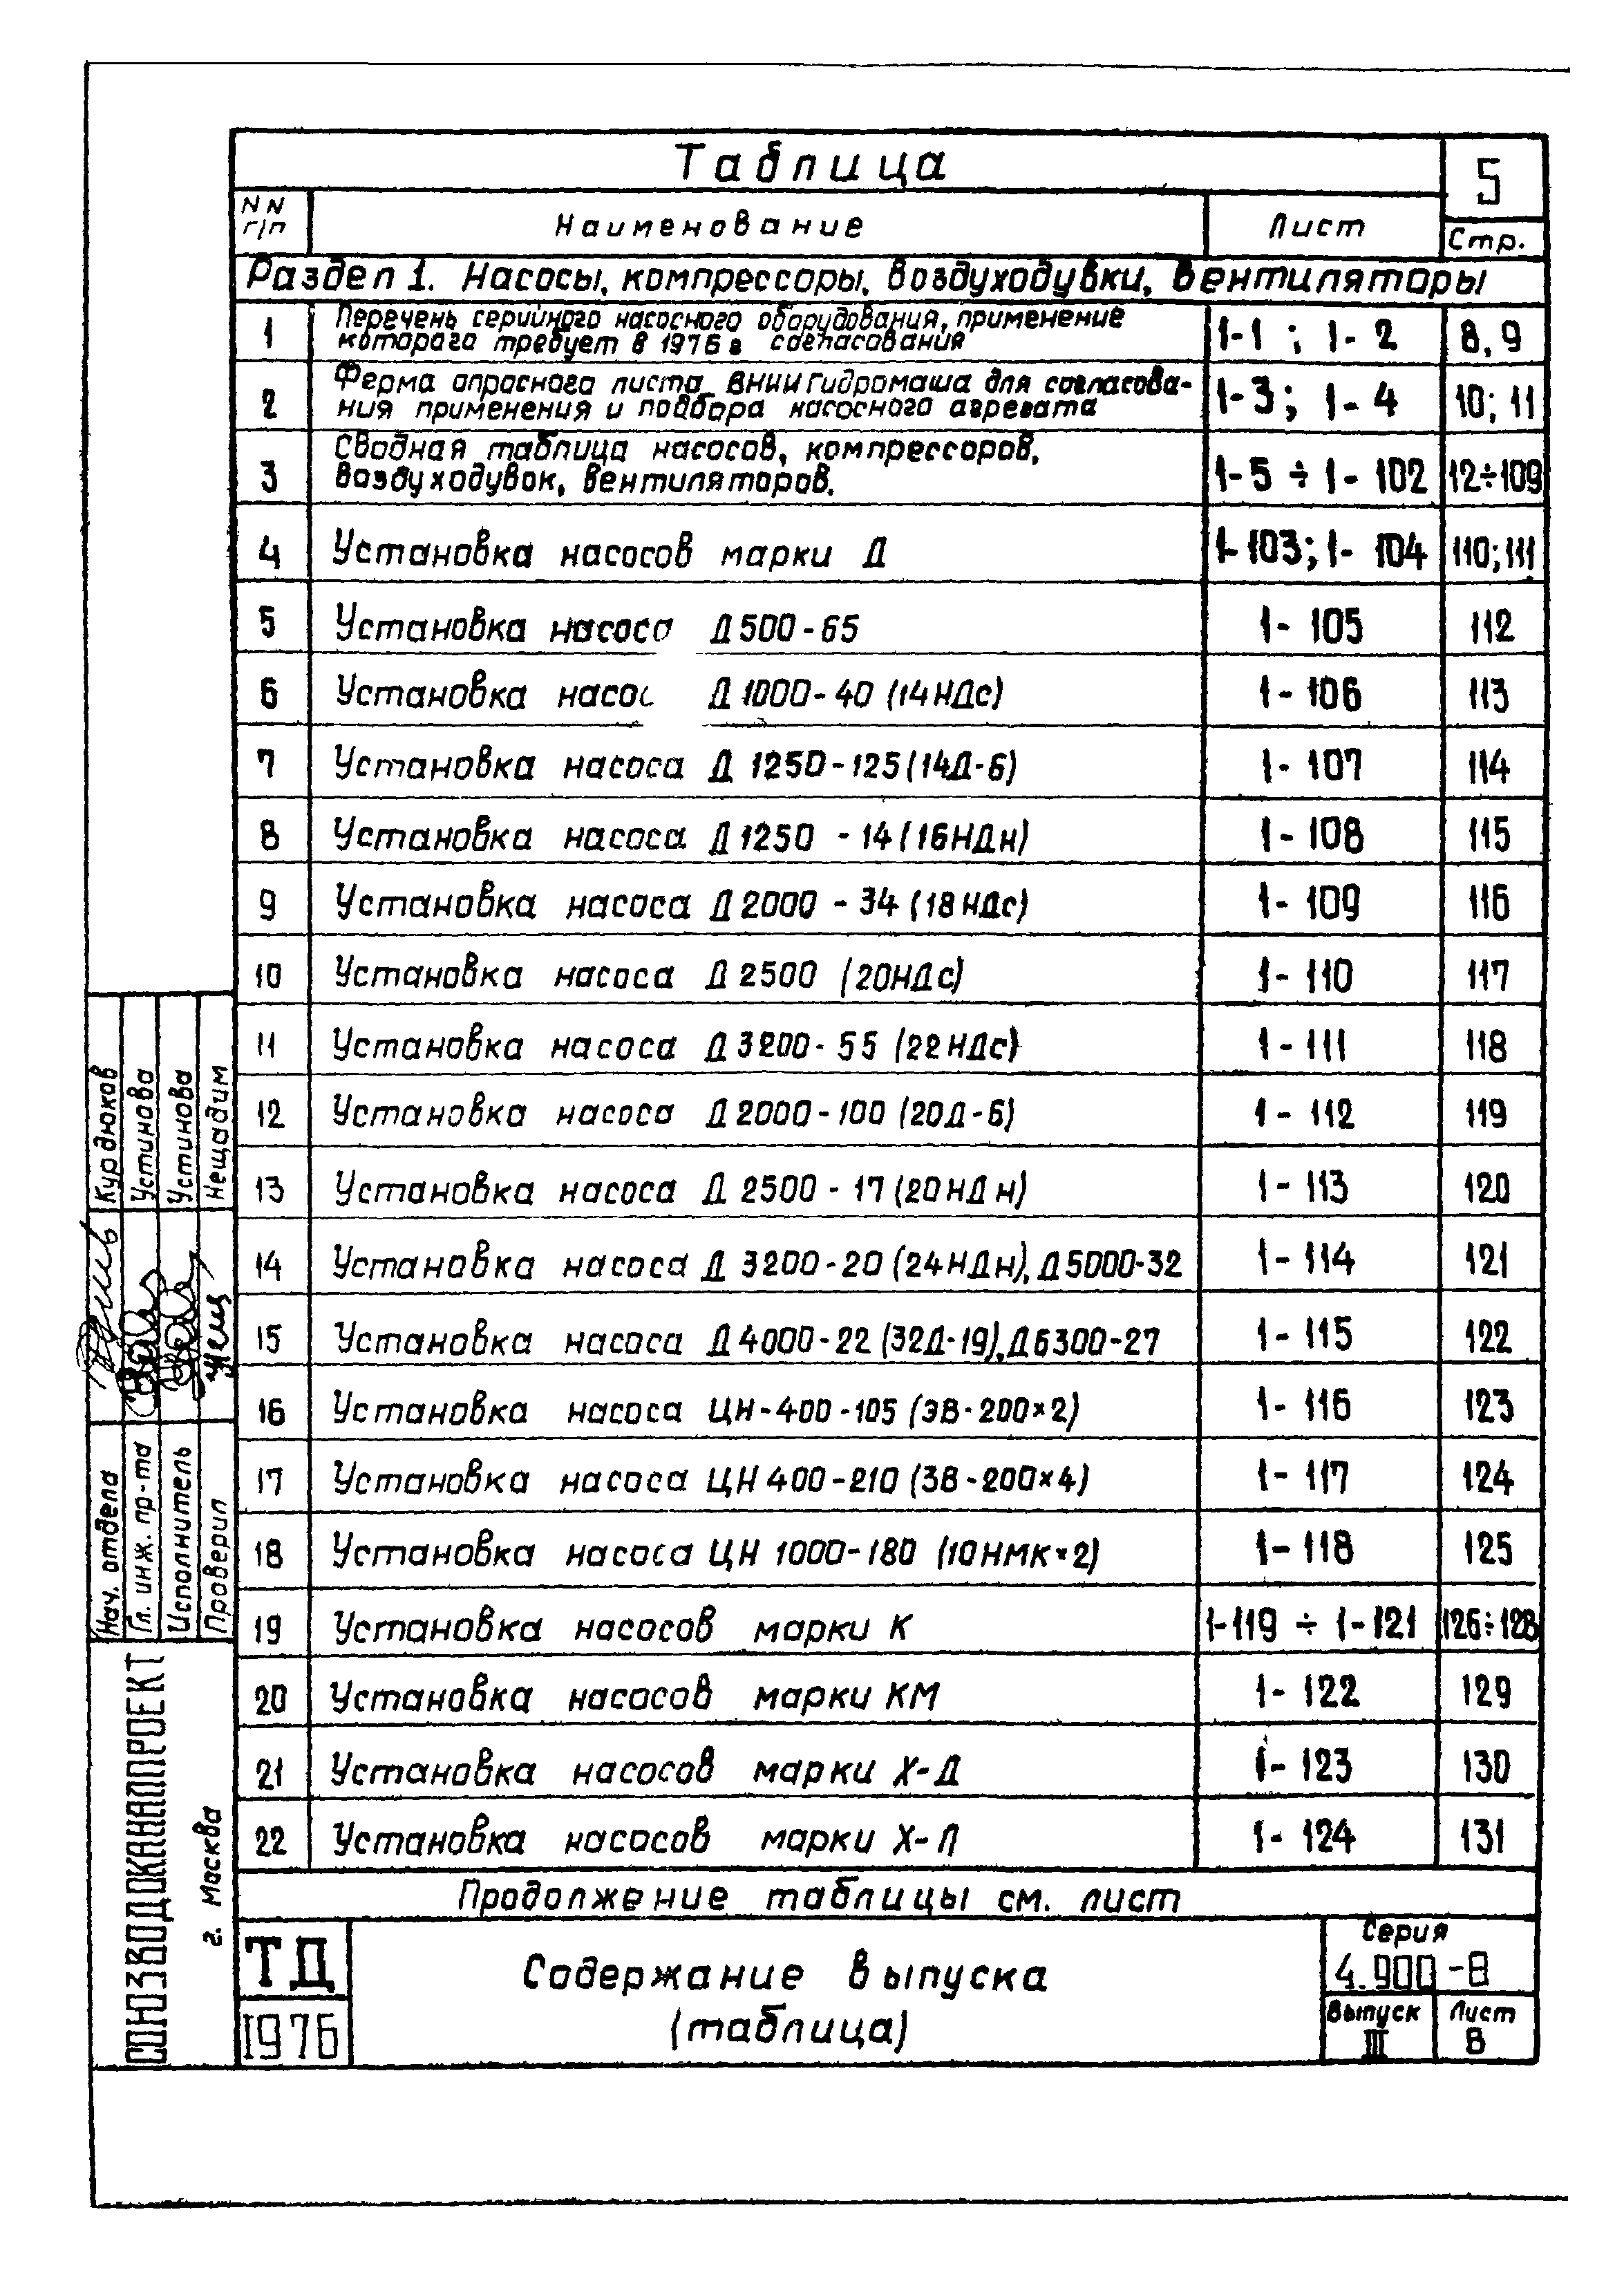 Таблица
5
NN
п/п
Наименование
Лист
Стр.
Раздел 1. Насосы, компрессоры, воздуходувки, вентиляторы
1 Перечень серийного насосного оборудования, применение
которого требует в 1976 г согласования 1-1 ; 1-2 8, 9
2 Форма опросного листа ВНИИгидромаша для согласова-
ния применения и подбора насосного агрегата 1-3; 1-4 10; 11
3 Сводная таблица насосов, компрессоров,
воздуходувок, вентиляторов. 1-5 ÷ 1-102 12÷109
4 Установка насосов марки Д 1-103; 1-104 110; 111
5 Установка насоса Д 500-65 1-105 112
6 Установка насос Д 1000-40 (14НДс) 1-106 113
7 Установка насоса Д 1250-125 (14Д-6) 1-107 114
8 Установка насоса Д 1250 - 14 (16НДн) 1-108 115
9 Установка насоса Д 2000 - 34 (18НДс) 1-109 116
10 Установка насоса Д 2500 (20НДс) 1-110 117
11 Установка насоса Д 3200-55 (22НДс) 1-111 118
12 Установка насоса Д 2000-100 (20Д-6) 1-112 119
13 Установка насоса Д 2500-17 (20НДн) 1-113 120
14 Установка насоса Д 3200-20 (24НДн), Д5000-32 1-114 121
15 Установка насоса Д 4000-22 (32Д-19), Д6300-27 1-115 122
16 Установка насоса ЦН-400-105 (3В-200×2) 1-116 123
17 Установка насоса ЦН 400-210 (3В-200×4) 1-117 124
18 Установка насоса ЦН 1000-180 (10НМК×2) 1-118 125
19 Установка насосов марки К 1-119 ÷ 1-121 126÷128
20 Установка насосов марки КМ 1-122 129
21 Установка насосов марки Х-Д 1-123 130
22 Установка насосов марки Х-Л 1-124 131
Продолжение таблицы см. лист
ТД
1976
Содержание выпуска
(таблица)
Серия
4.900-8
Выпуск
III
Лист
8
Нач. отдела Курдюков
Гл. инж. пр-та Устинова
Исполнитель Устинова
Проверил Нещадим
СОЮЗВОДОКАНАЛПРОЕКТ
г. Москва